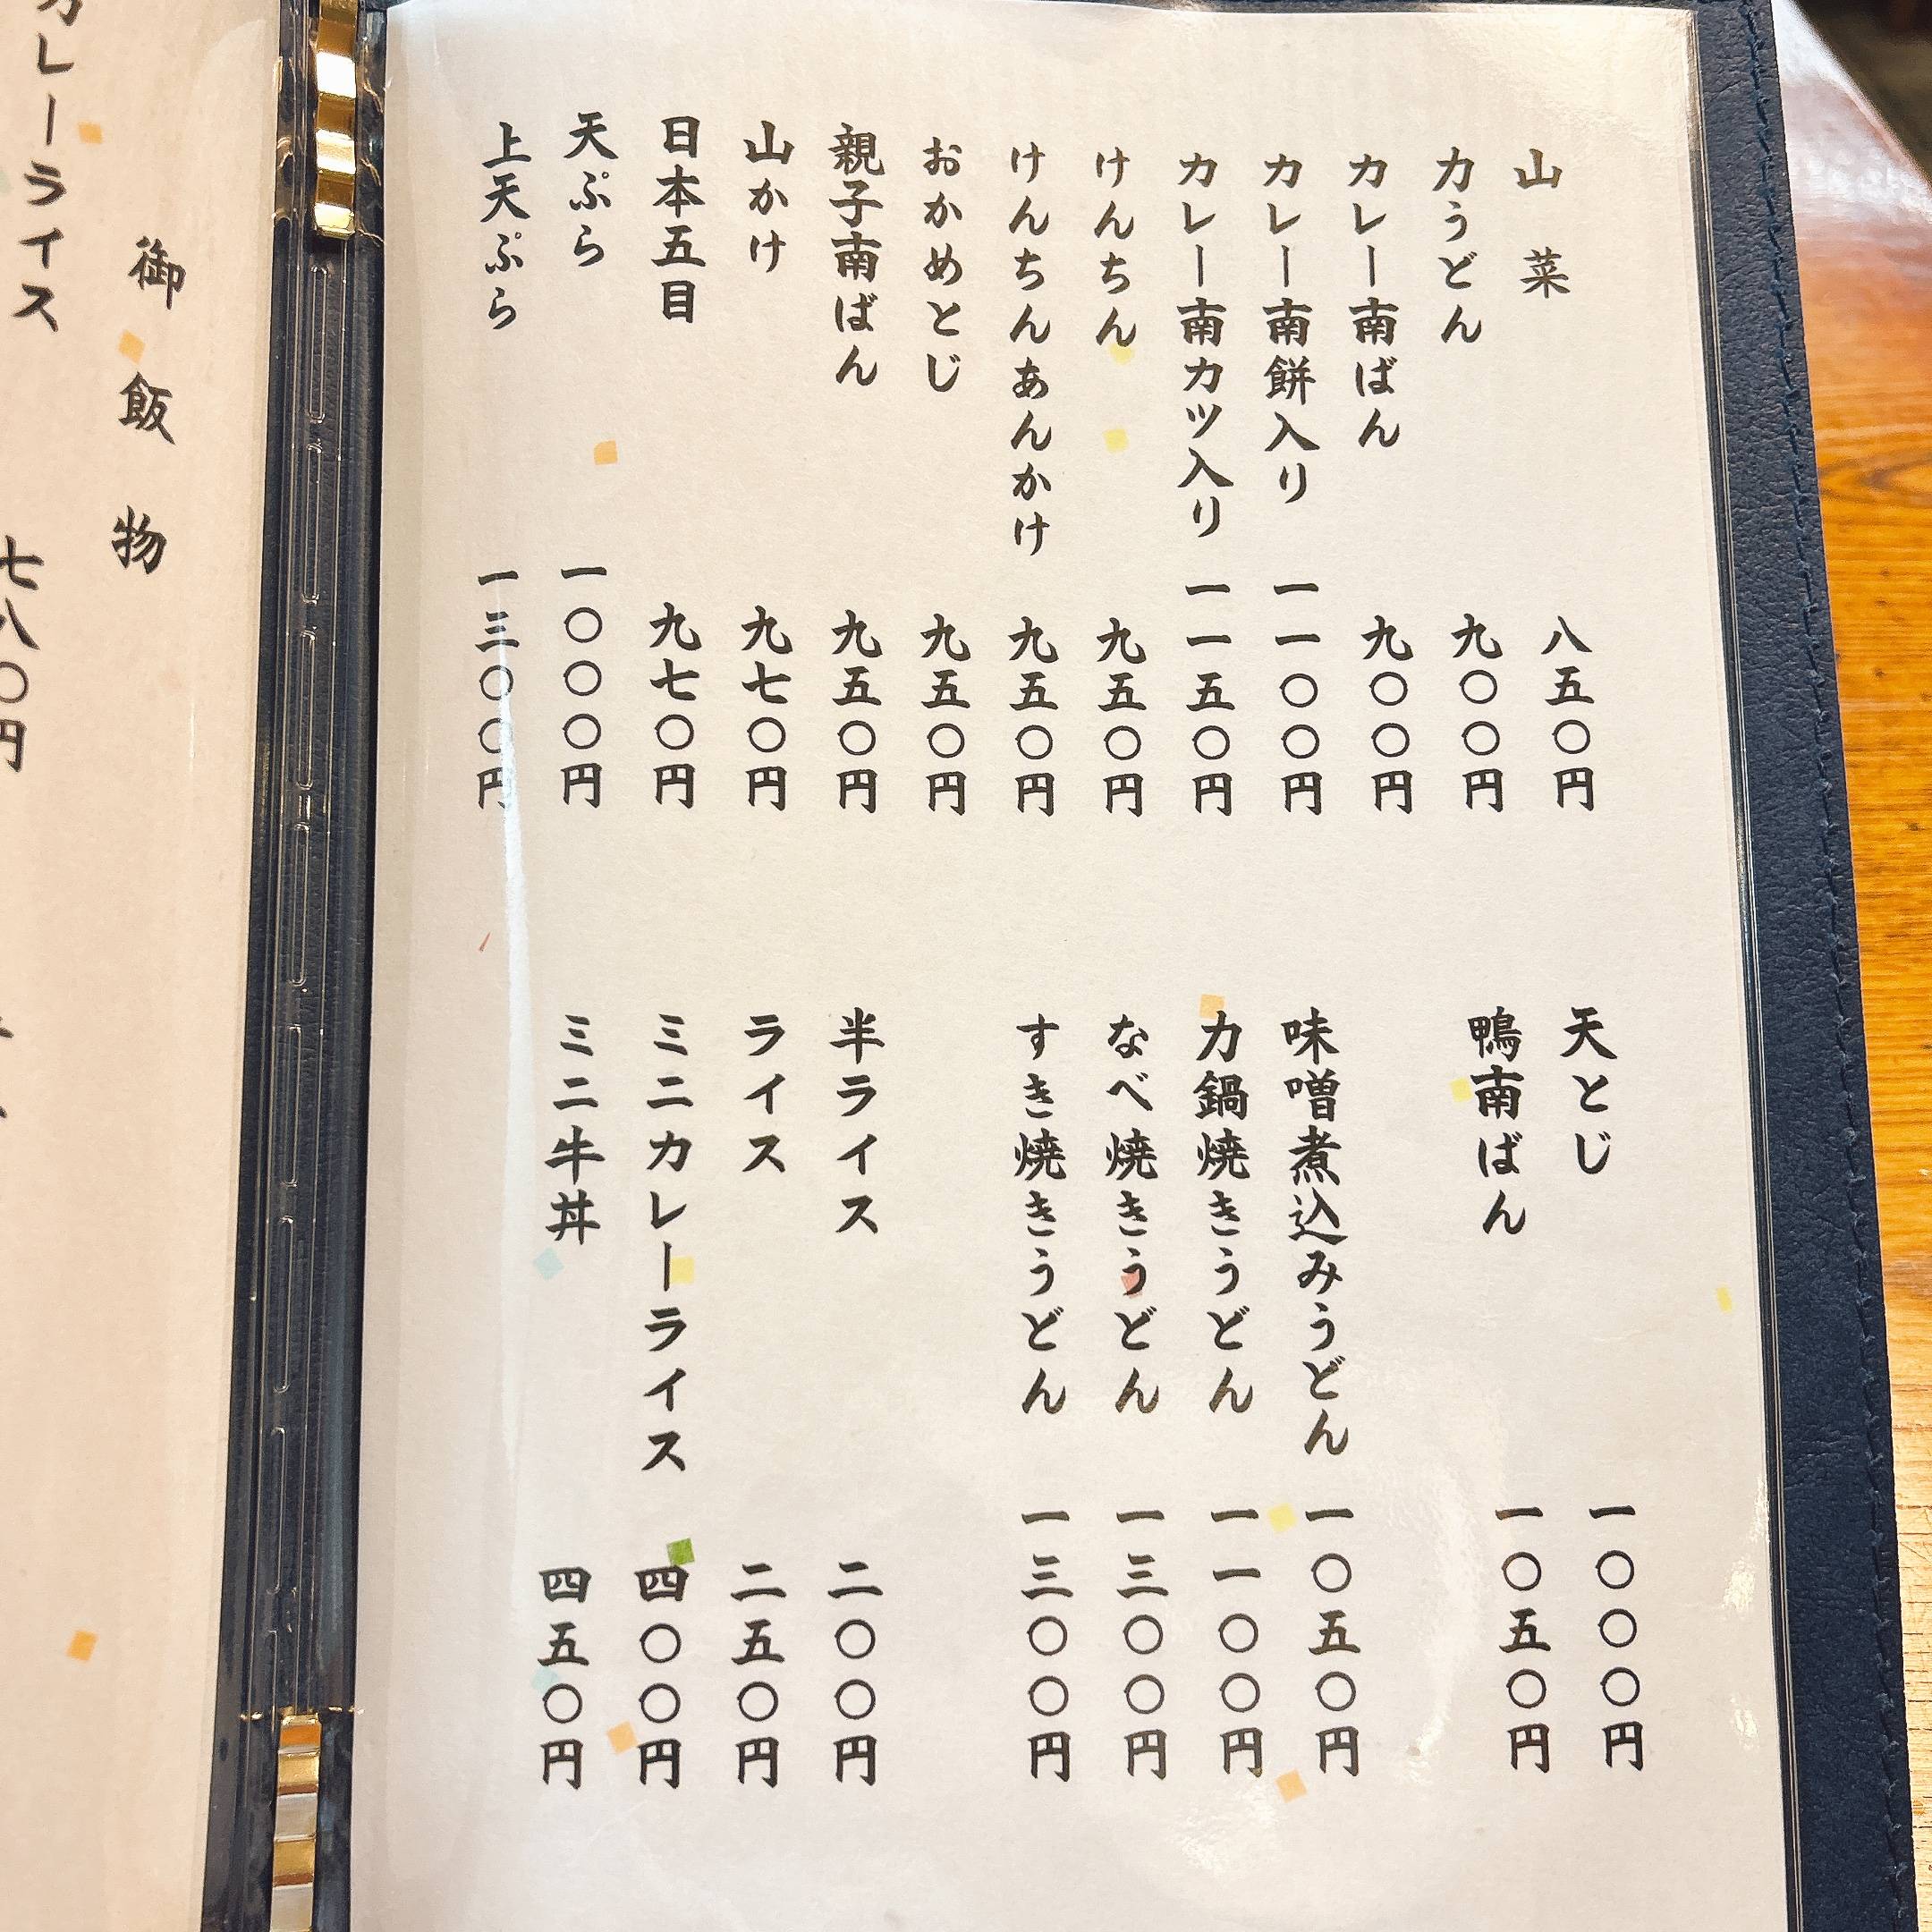 山菜 八五〇円
力うどん 九〇〇円
カレー南ばん 九〇〇円
カレー南餅入り 一一〇〇円
カレー南カツ入り 一一五〇円
けんちん 九五〇円
けんちんあんかけ 九五〇円
おかめとじ 九五〇円
親子南ばん 九五〇円
山かけ 九七〇円
日本五目 九七〇円
天ぷら 一〇〇〇円
上天ぷら 一三〇〇円
天とじ 一〇〇〇円
鴨南ばん 一〇五〇円
味噌煮込みうどん 一〇五〇円
力鍋焼きうどん 一一〇〇円
なべ焼きうどん 一三〇〇円
すき焼きうどん 一三〇〇円
半ライス 二〇〇円
ライス 二五〇円
ミニカレーライス 四〇〇円
ミニ牛丼 四五〇円
御飯物
カレーライス 七八〇円